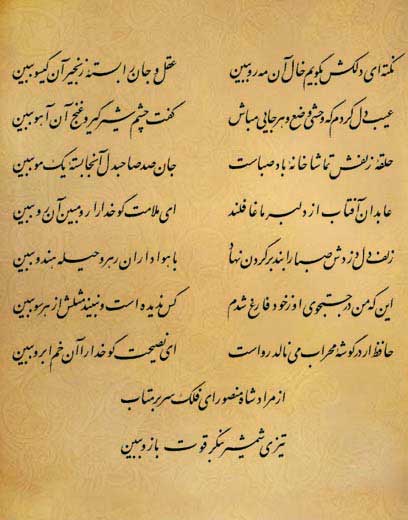 نکته‌ای دلکش بگویم خال آن مه رو ببین عقل و جان را بسته زنجیر آن گیسو ببین
عیب دل کردم که وحشی وضع و هرجایی مباش گفت چشم شیرگیر و غنج آن آهو ببین
حلقه زلفش تماشاخانه باد صباست جان صد صاحبدل آنجا بسته یک مو ببین
عابدان آفتاب از دلبر ما غافلند ای ملامت گو خدا را رو مبین آن رو ببین
زلف دل دزدش صبا را بند بر گردن نهاد با هواداران رهرو حیله هندو ببین
این که من در جستجوی او ز خود فارغ شدم کس ندیده است و نبیند مثلش از هر سو ببین
حافظ ار در گوشه محراب می نالد رواست ای نصیحت گو خدا را آن خم ابرو ببین
از مراد شاه منصور ای فلک سر بر متاب
تیزی شمشیر بنگر قوت بازو ببین